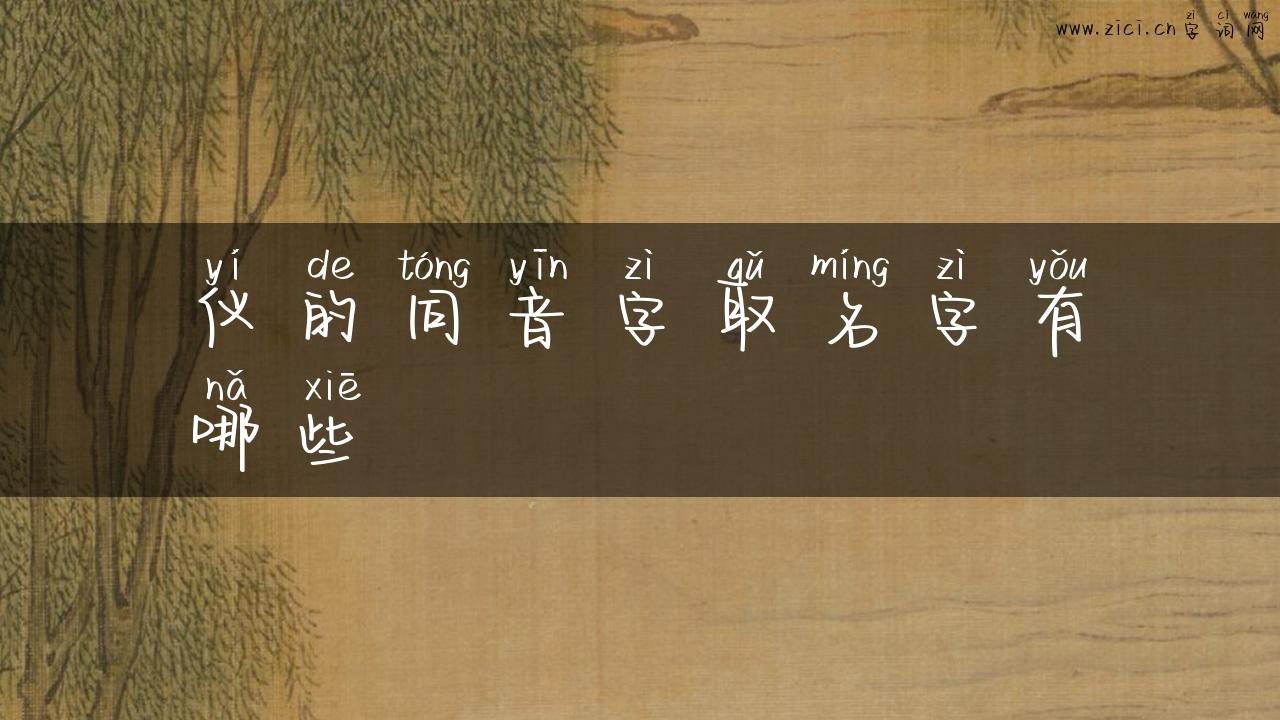 zì cí wǎng
www.zici.cn字词网
yí de tóng yīn zì qǔ míng zì yǒu
仪的同音字取名字有
nǎ xiē
哪些